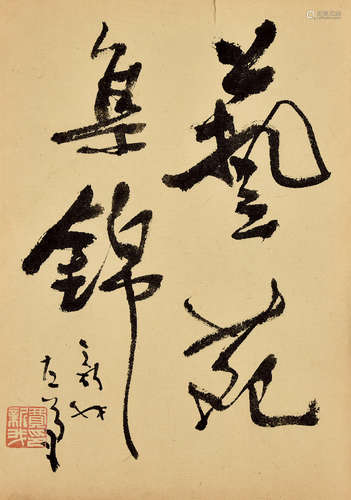 藝苑
集錦
新我
左筆